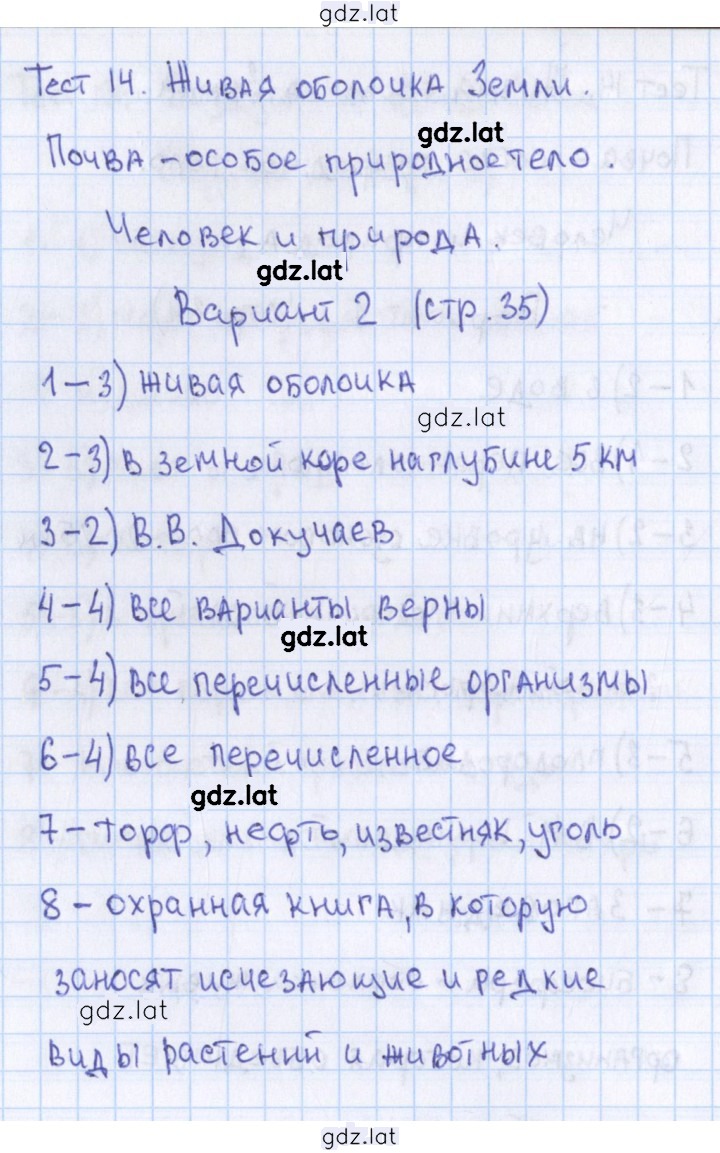 gdz.lat
Тест 14. Живая оболочка Земли.
gdz.lat
Почва – особое природное тело.
Человек и природа.
gdz.lat
Вариант 2 (стр. 35)
1 – 3) живая оболочка
gdz.lat
2 – 3) в земной коре на глубине 5 км
3 – 2) В.В. Докучаев
4 – 4) все варианты верны
gdz.lat
5 – 4) все перечисленные организмы
6 – 4) все перечисленное
gdz.lat
7 – торф, нефть, известняк, уголь
8 – охранная книга, в которую
заносят исчезающие и редкие
gdz.lat
виды растений и животных
gdz.lat